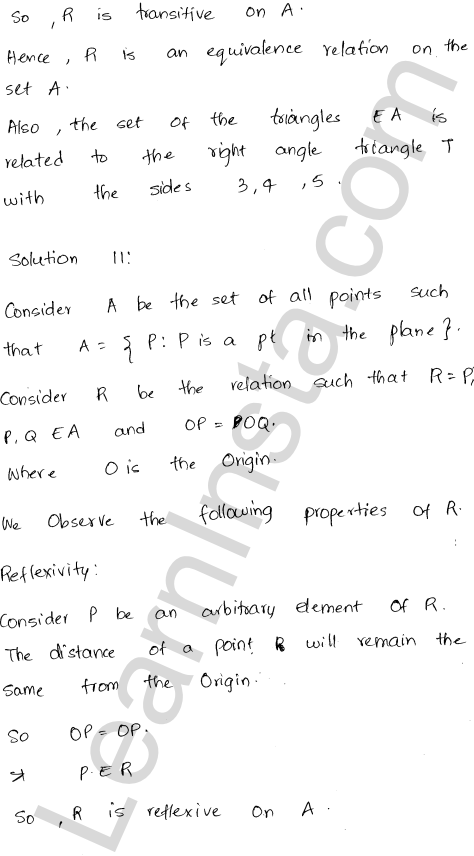 So, R is transitive on A.
Hence, R is an equivalence relation on the
set A.
Also, the set of the triangles E A is
related to the right angle triangle T
with the sides 3,4 ,5.
Solution 11:
Consider A be the set of all points such
that A = { P: P is a pt in the plane}.
Consider R be the relation such that R = P,
P, Q E A and OP = OQ.
Where O is the Origin.
We Observe the following properties of R.
:
Reflexivity:
Consider P be an arbitrary element Of R.
The distance of a point will remain the
Same from the Origin.
So OP = OP.
P E R
So, R is reflexive On A.
LearnInsta.com